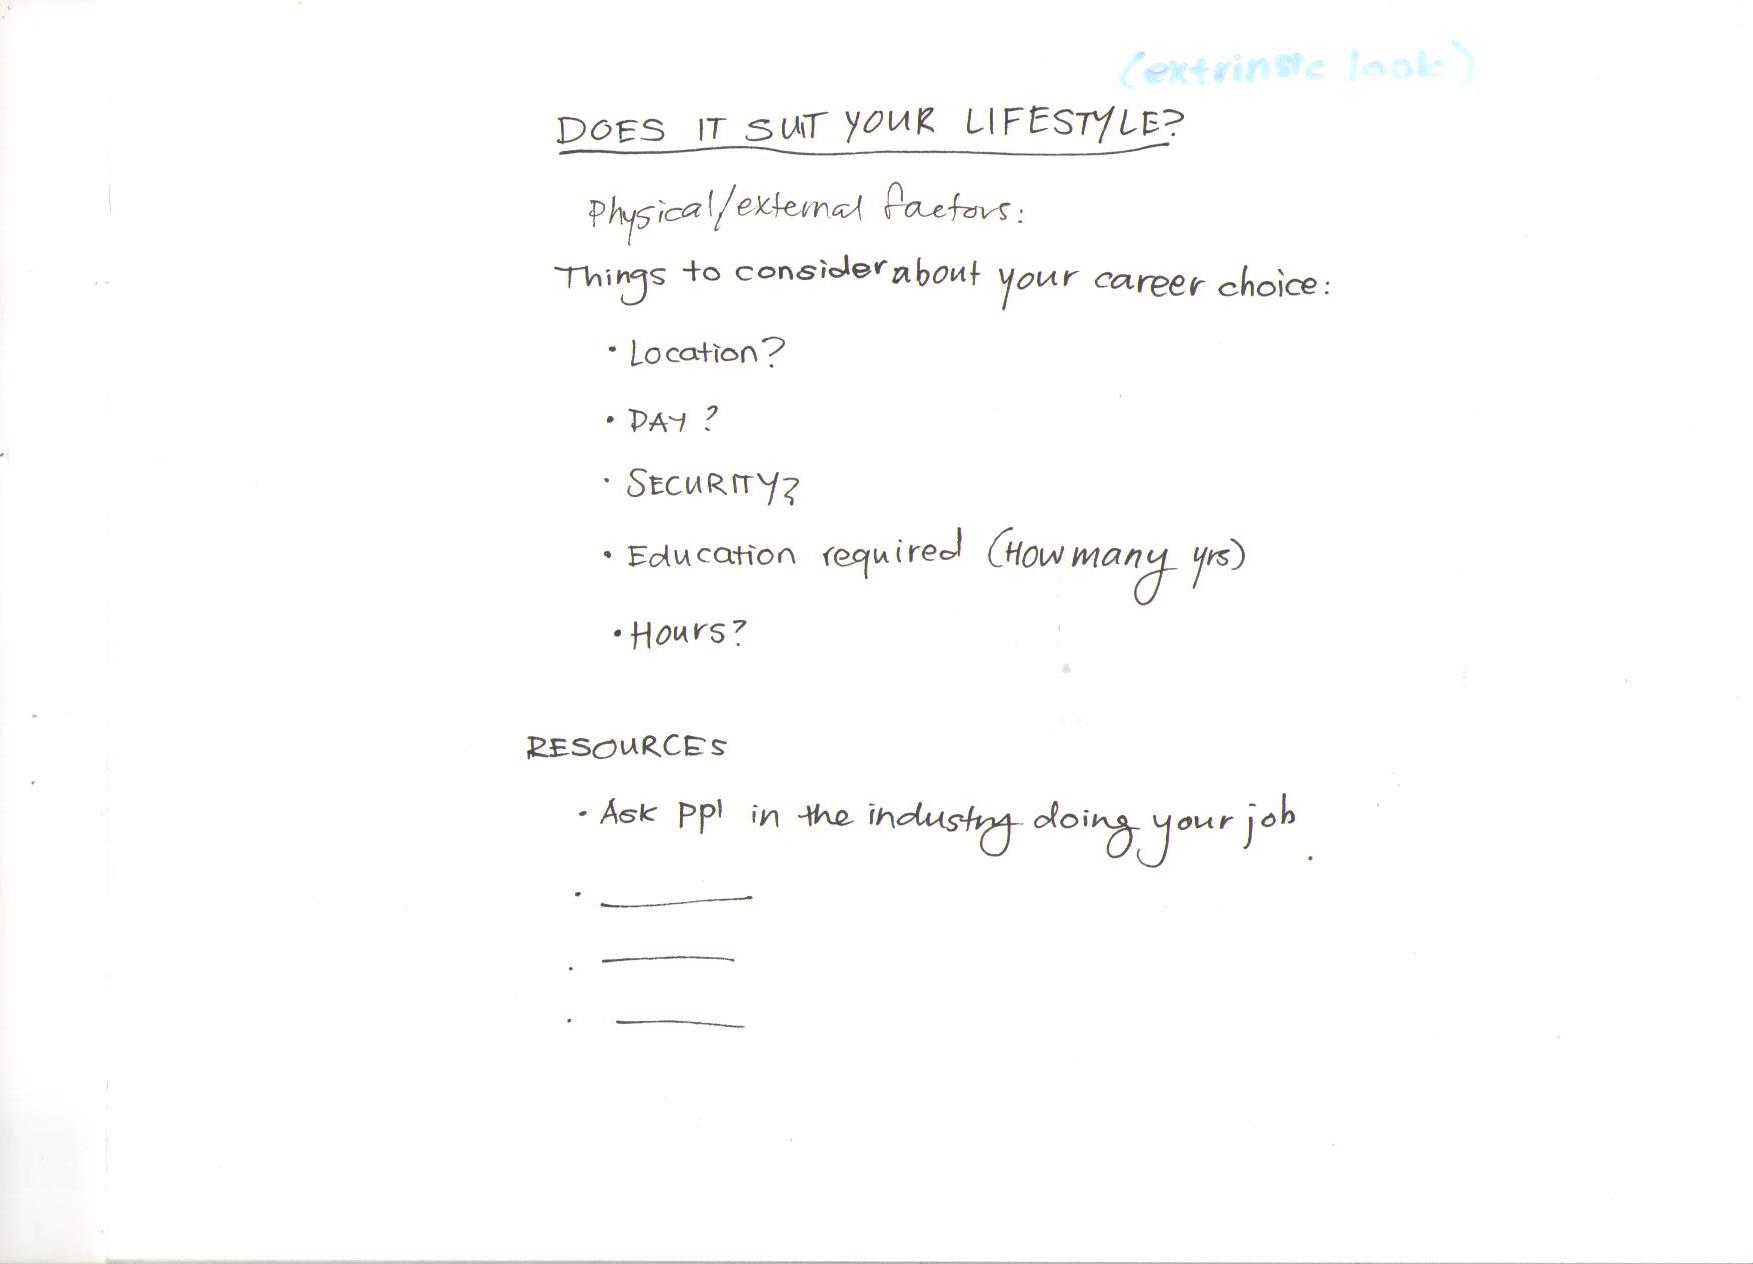 (extrinsic look)
DOES IT SUIT YOUR LIFESTYLE?
Physical/external factors:
Things to consider about your career choice:
• Location?
• PAY?
• SECURITY?
• Education required (How many yrs)
• Hours?
RESOURCES
• Ask ppl in the industry doing your job.
•
•
•